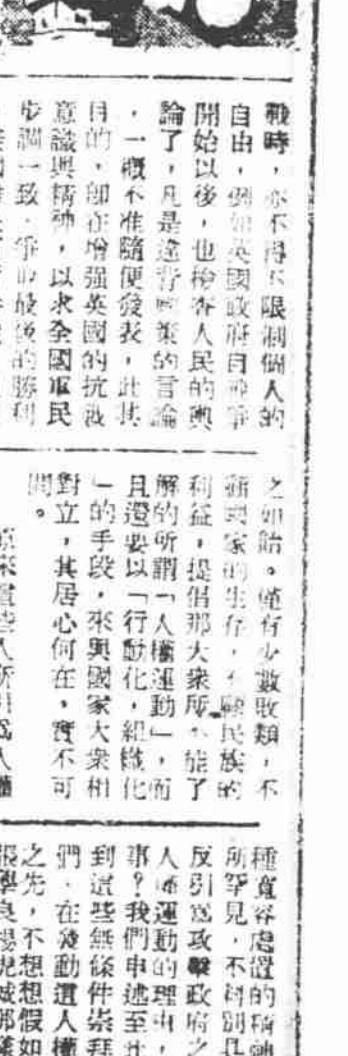 戰時，亦不得不限制個人的
自由，例如英國政府自戰事
開始以後，也檢查人民的輿
論了，凡是違背國策的言論
，一概不准隨便發表，此其
目的，卽在增强英國的抗戰
意識與精神，以求全國軍民
步調一致，爭取最後的勝利
之如飴。僅有少數敗類，不
顧國家的生存，不顧民族的
利益，提倡那大衆所不能了
解的所謂「人權運動」，而
且還要以「行動化，組織化
」的手段，來與國家大衆相
對立，其居心何在，實不可
問。
這些人所
人權
種寬容處置的精神
所罕見，不料別具
反引爲攻擊政府之
人權運動的理由，
事？我們申述至此
到這些無條件崇拜
們，在發動這人權
之先，不想想假如
張學良楊虎城那